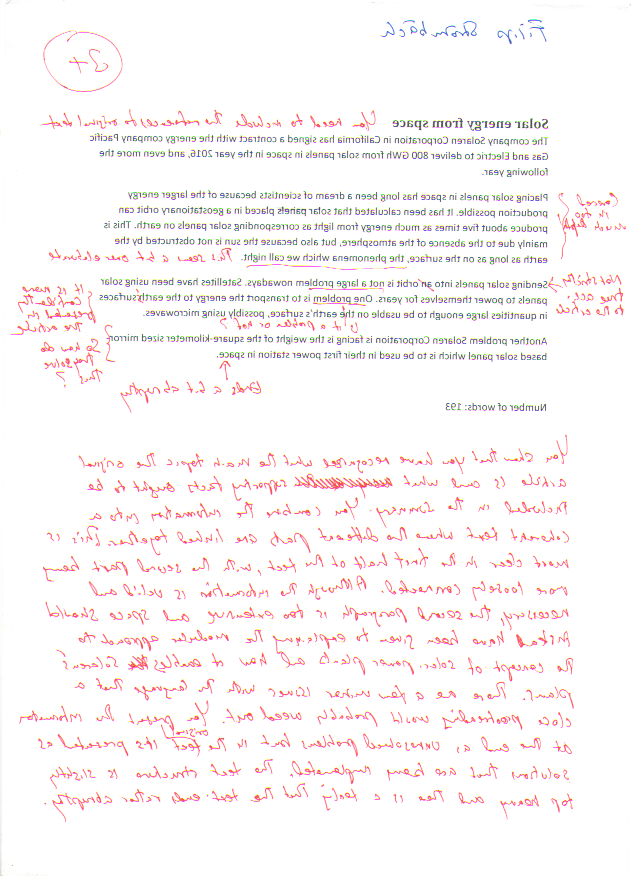 Filip Strömbäck
3+
Solar energy from space You need to include the reference to original text
The company Solaren Corporation in California has signed a contract with the energy company Pacific
Gas and Electric to deliver 800 GWh from solar panels in space in the year 2016, and even more the
following year.
Placing solar panels in space has long been a dream of scientists because of the larger energy
production possible. It has been calculated that solar panels placed in a geostationary orbit can
produce about five times as much energy from light as corresponding solar panels on earth. This is
mainly due to the absence of the atmosphere, but also because the sun is not obstructed by the
earth as long as on the surface, the phenomenon which we call night. This seems a bit over elaborate
Covered
in too
much depth
Sending solar panels into an orbit is not a large problem nowadays. Satellites have been using solar
panels to power themselves for years. One problem is to transport the energy to the earth's surfaces
in quantities large enough to be usable no the earth's surface, possibly using microwaves.
Not strictly
true acc.
to the article
Is it a problem or not?
It is more
confidently
presented in
the article
So how do
they solve
this?
Another problem Solaren Corporation is facing is the weight to the square-kilometer sized mirror-
based solar panel which is to be used in their first power station in space.
Ends a bit abruptly
Number of words: 193
You show that you have recognized what the main topic the original
article is and what supporting facts ought to be
included in the summary. You combine the information into a
coherent text where the different parts are linked together. This is
most clear in the first half of the text, with the second part being
more loosely connected. Although the information is valid and
necessary, the second paragraph is too extensive and space should
instead have been given to explaining the modular approach to
the concept of solar power plants and how it enables Solaren's
plans. There are a few minor issues with the language that a
close proofreading would probably weed out. You present the information
at the end as unresolved problems but in the original text it's presented as
solutions that are being implemented. The text structure is slightly
top heavy and there is a feeling that the text ends rather abruptly.